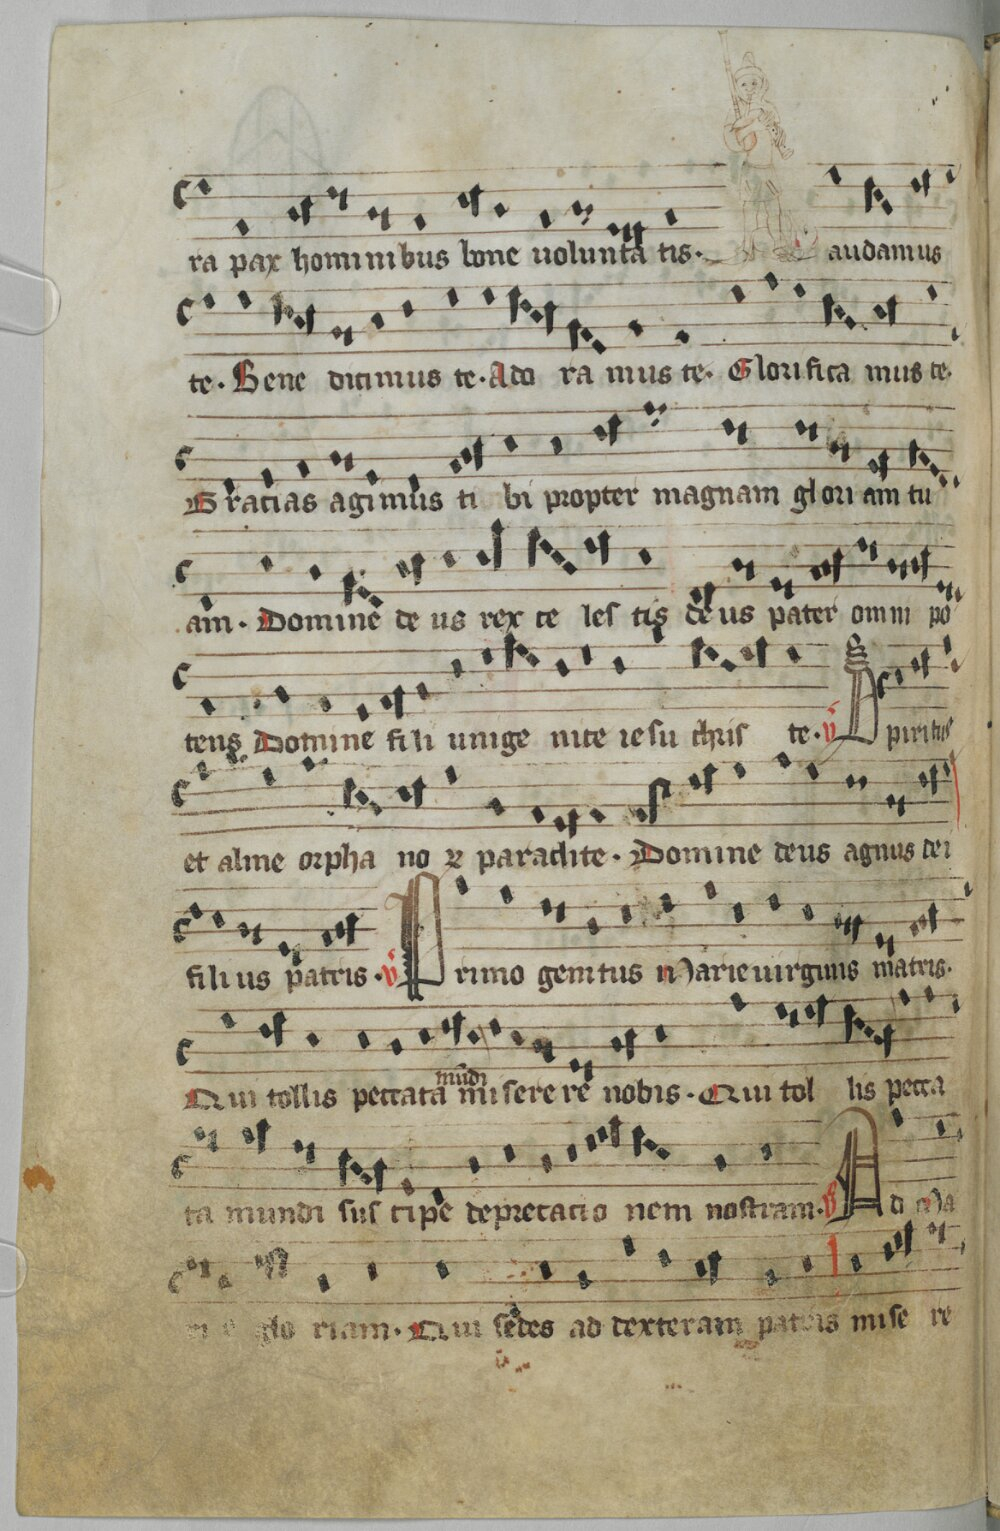 ra pax hominibus bone uolunta tis. audamus
te. Bene dicimus te. Ado ra mus te. Glorifica mus te.
Gracias agimus ti bi propter magnam glori am tu
am. Domine de us rex ce les tis de us pater omni po
tens Domine fili unige nite iesu chris te. v̄ Spiritus
et alme orpha no ꝝ paraclite. Domine deus agnus dei
fili us patris. v̄ Primo genitus Marie uirginis matris.
Qui tollis peccata mūdi miserere nobis. Qui tol lis pecca
ta mundi sus cipe deprecacio nem nostram. v̄ Ad Ma
ri e glo riam. Qui sedes ad dexteram patris mise re